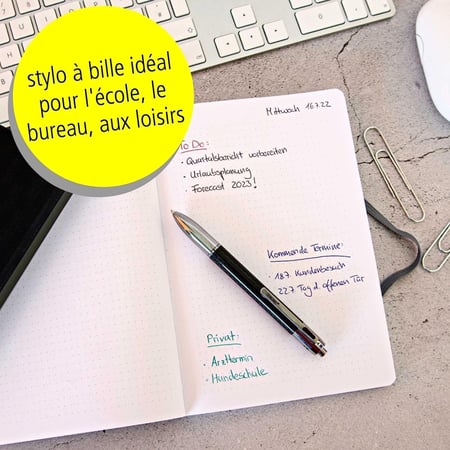 stylo à bille idéal
pour l'école, le
bureau, aux loisirs
Mittwoch 16.7.22
To Do:
· Quartalsbericht vorbereiten
· Urlaubsplanung
· Forecast 2023!
Kommende Termine:
· 18.7. Kundenbesuch
· 22.7 Tag d. offenen Tür
Privat:
· Arzttermin
· Hundeschule